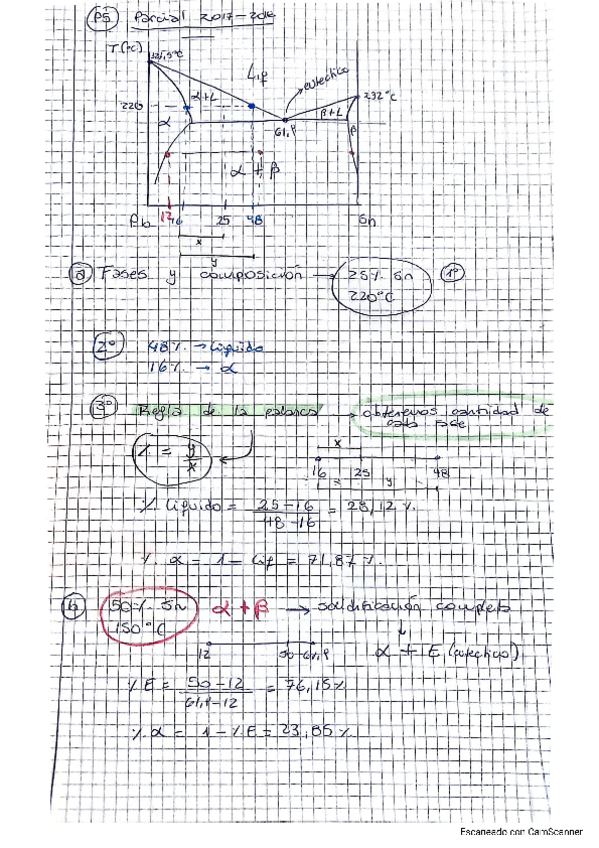 P5 Parcial 2017-2018
T(ºC)
Liq
eutéctico
232ºC
220
α+L
β+L
α
61,9
β
α + β
Pb 12 16 25 48 Sn
x
y
a) Fases y composición → 25% Sn 1º
220ºC
2º 48% → Líquido
16% → α
3º Regla de la palanca → obtenemos cantidad de
cada fase
x
16 25 48
y
% Líquido = 25-16 / 48-16 = 28,12%
% α = 1 - Liq = 71,87%
b) 50% Sn α + β → solidificación completa
150ºC
α + E (eutéctico)
12 50 61,9
% E = 50-12 / 61,9-12 = 76,15%
% α = 1 - % E = 23,85%
Escaneado con CamScanner